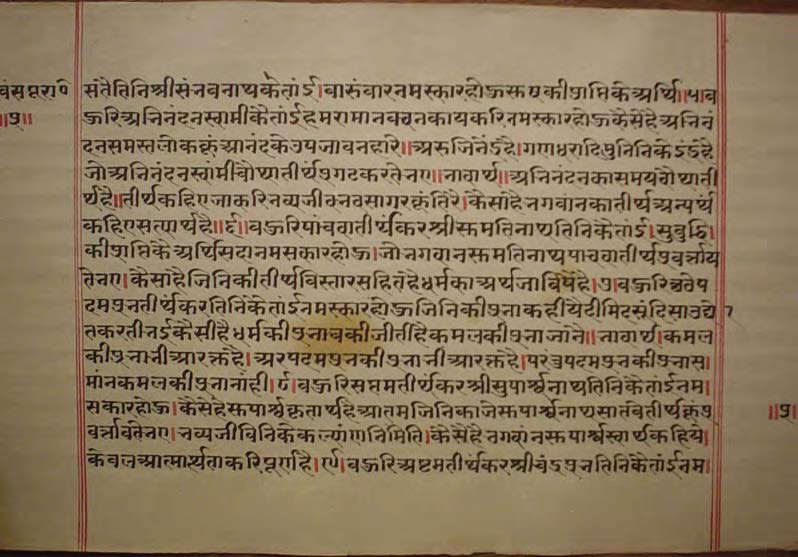 वंसपुराण
॥५॥
संतैतिनिश्रीसंनवनाथकेतांई।वारुंवारनमस्कारहोऊरूपकीप्राप्तिकेअर्थि॥५।व
ऊरिअनिनंदनस्वामीकैतांईहमरामानवचनकायकरिनमस्कारहोऊकैसेहैअनिनं
दनसमस्तलोककूंआनंदकेउपजावनहारे॥अरुजिनंइंहै।गणधरादिमुनिनिकेइंइंहै
जोअनिनंदनस्वामीचोथातीर्थप्रगटकरतेनए॥नावार्थ॥अनिनंदनकासमयचोथाती
र्थहै॥तीर्थकहिएजाकरिनव्यजीवनवसागरकूंतिरे।कैसाहैनगवानकातीर्थअन्वर्थ
कहिएसत्यार्थहै॥६।वऊरिपांचवातीर्थंकरश्रीरुमतिनाथतिनिकैतांई।सुबुद्धि
कीप्राप्तिकेअर्थिसदानमसकारहोऊ।जोनगवानरुमतिनाथपाचवातीर्थप्रवर्त्ताय
तेनए।कैसाहैजिनिकीतीर्थविस्तारसहितहैधर्मकाअर्थजाविषैहै।७।वऊरिछठेप
दमप्रनतीर्थंकरतिनिकैतांईनमस्कारहोऊजिनिकीप्रनाकहीयेदीमिदसूंदिसाउद्यो
तकरतीनईकैसीहैधर्मकीप्रनाचकीजीतीहैकमलकीप्रनाजाने॥नावार्थ।कमल
कीप्रनानीआरक्तहै।अरपदमप्रनकीप्रनानीआरक्तहै।परंतुपदमप्रनकीप्रनास
मांनकमलकीप्रनानांही।८।वऊरिसप्तमतीर्थंकरश्रीसुपार्श्वनाथतिनिकैतांईनम
सकारहोऊ।कैसेहैरुपार्श्वकृतार्थहैआतमजिनिकाजेरुपार्श्वनाथसातंवतीर्थकूंप्र
वर्त्तावतेनए।नव्यजीवनिकेकल्यांणनिमिति।कैसेहैनगवांनरुपार्श्वस्वार्थकहिये
केवलआत्मार्थताकरिपूर्णहै।९।वऊरिअष्टमतीर्थंकरश्रीचंद्रप्रनतिनिकैतांईनम
॥५॥